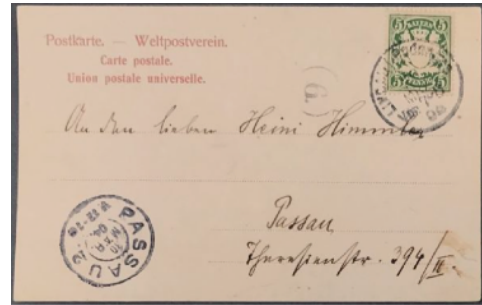 Postkarte. — Weltpostverein.
Carte postale.
Union postale universelle.
BAYERN
5 5
5 PFENNIG 5
An den lieben Heini Himmler
Passau
Theresienstr. 394/II.
PASSAU 2
MZR
04